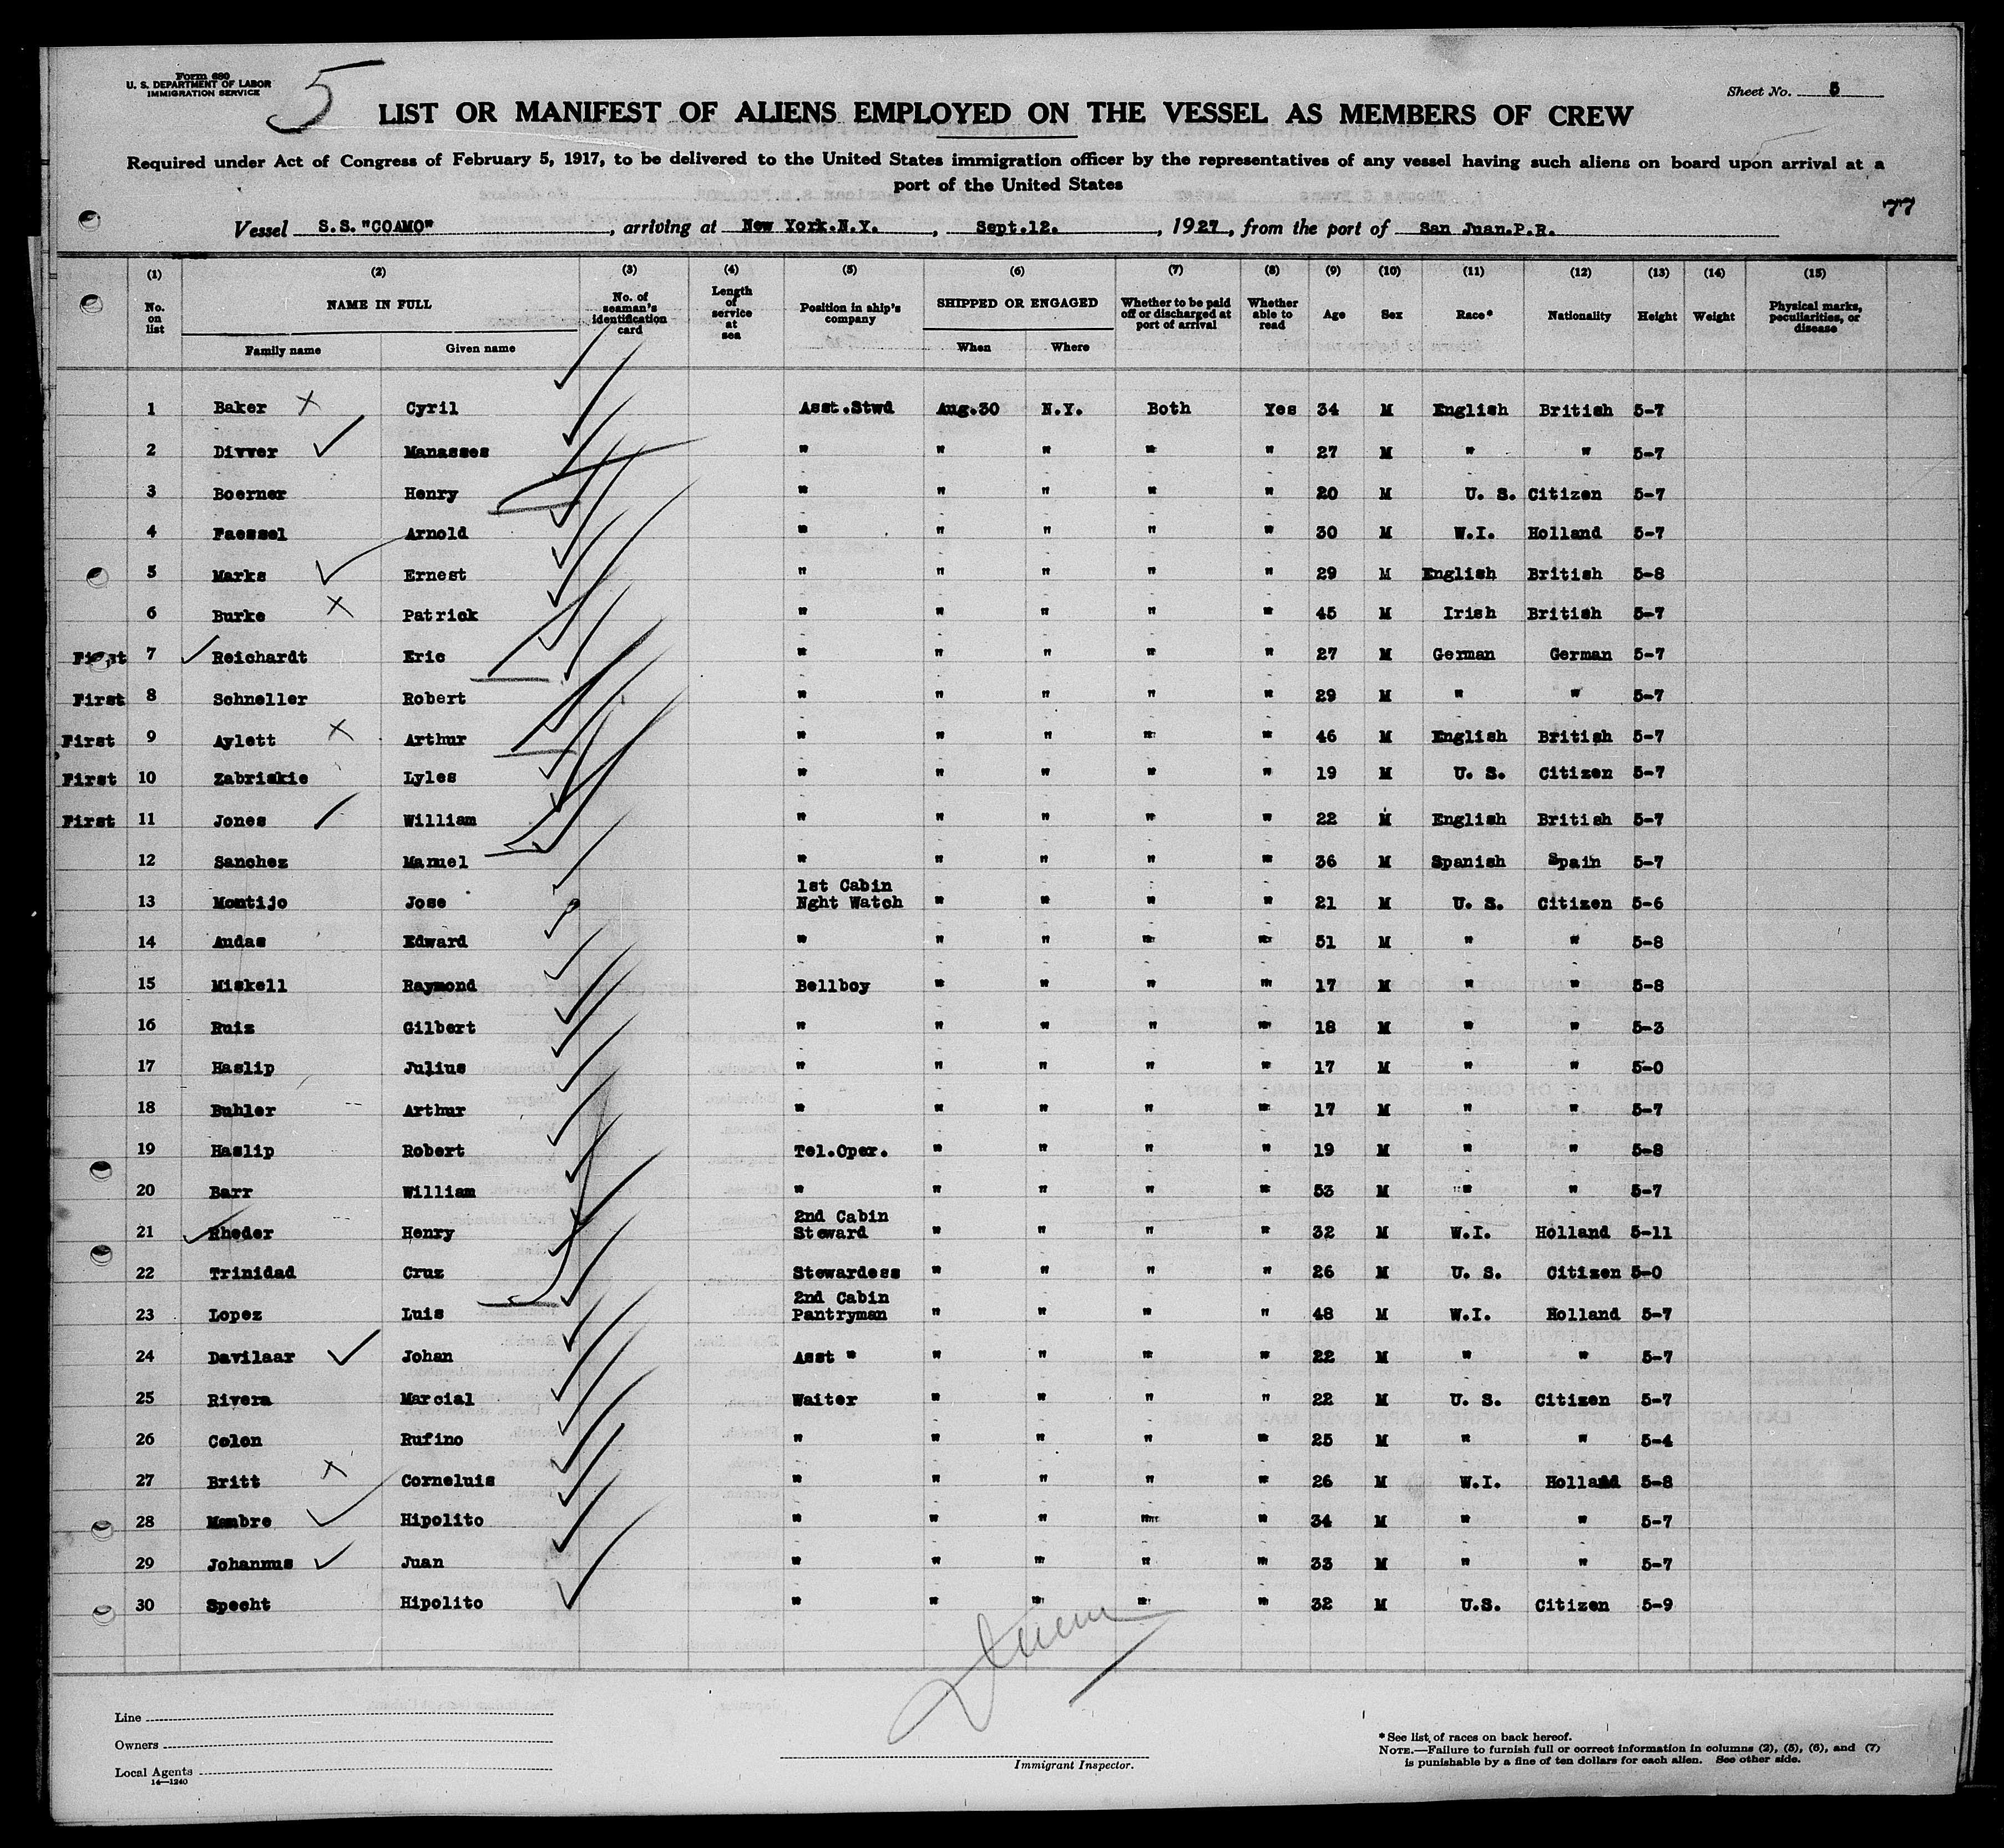 Form 680
U. S. DEPARTMENT OF LABOR
IMMIGRATION SERVICE
5
Sheet No. 5
LIST OR MANIFEST OF ALIENS EMPLOYED ON THE VESSEL AS MEMBERS OF CREW
Required under Act of Congress of February 5, 1917, to be delivered to the United States immigration officer by the representatives of any vessel having such aliens on board upon arrival at a
port of the United States
77
Vessel S.S."COAMO", arriving at New York.N.Y., Sept.12., 1927, from the port of San Juan.P.R.
(1) (2) (3) (4) (5) (6) (7) (8) (9) (10) (11) (12) (13) (14) (15)
No. on list NAME IN FULL No. of seaman's identification card Length of service at sea Position in ship's company SHIPPED OR ENGAGED Whether to be paid off or discharged at port of arrival Whether able to read Age Sex Race* Nationality Height Weight Physical marks, peculiarities, or disease
Family name Given name When Where
1 Baker Cyril Asst.Stwd Aug.30 N.Y. Both Yes 34 M English British 5-7
2 Divver Manasses " " " " " 27 M " " 5-7
3 Boerner Henry " " " " " 20 M U. S. Citizen 5-7
4 Faessel Arnold " " " " " 30 M W.I. Holland 5-7
5 Marks Ernest " " " " " 29 M English British 5-8
6 Burke Patrick " " " " " 45 M Irish British 5-7
First 7 Reichardt Eric " " " " " 27 M German German 5-7
First 8 Schneller Robert " " " " " 29 M " " 5-7
First 9 Aylett Arthur " " " " " 46 M English British 5-7
First 10 Zabriskie Lyles " " " " " 19 M U. S. Citizen 5-7
First 11 Jones William " " " " " 22 M English British 5-7
12 Sanchez Manuel " " " " " 36 M Spanish Spain 5-7
1st Cabin
13 Montijo Jose Nght Watch " " " " 21 M U. S. Citizen 5-6
14 Audas Edward " " " " " 51 M " " 5-8
15 Miskell Raymond Bellboy " " " " 17 M " " 5-8
16 Ruiz Gilbert " " " " " 18 M " " 5-3
17 Haslip Julius " " " " " 17 M " " 5-0
18 Buhler Arthur " " " " " 17 M " " 5-7
19 Haslip Robert Tel.Oper. " " " " 19 M " " 5-8
20 Barr William " " " " " 53 M " " 5-7
2nd Cabin
21 Rheder Henry Steward " " " " 32 M W.I. Holland 5-11
22 Trinidad Cruz Stewardess " " " " 26 M U. S. Citizen 5-0
2nd Cabin
23 Lopez Luis Pantryman " " " " 48 M W.I. Holland 5-7
24 Davilaar Johan Asst " " " " " 22 M " " 5-7
25 Rivera Marcial Waiter " " " " 22 M U. S. Citizen 5-7
26 Colon Rufino " " " " " 25 M " " 5-4
27 Britt Corneluis " " " " " 26 M W.I. Holland 5-8
28 Mambre Hipolito " " " " " 34 M " " 5-7
29 Johannus Juan " " " " " 33 M " " 5-7
30 Specht Hipolito " " " " " 32 M U.S. Citizen 5-9
Line
Owners
Local Agents
14—1240
Immigrant Inspector.
*See list of races on back hereof.
NOTE.—Failure to furnish full or correct information in columns (2), (5), (6), and (7)
is punishable by a fine of ten dollars for each alien. See other side.